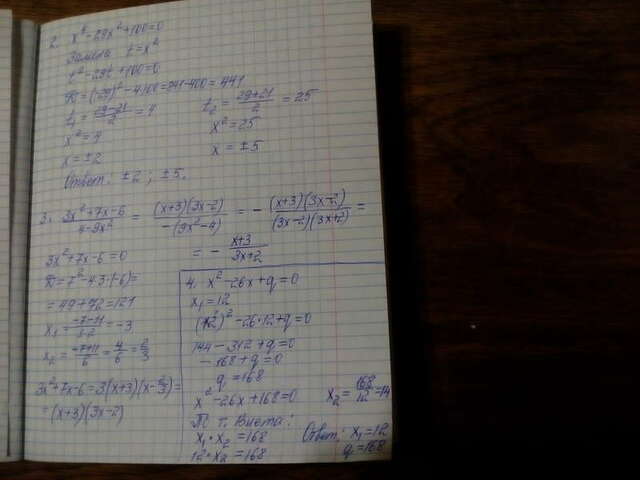 2. x⁴-29x²+100=0
Замена t=x²
t²-29t+100=0
D=(-29)²-4·100=841-400=441
t₁=(29-21)/2=4 t₂=(29+21)/2=25
x²=4 x²=25
x=±2 x=±5
Ответ: ±2; ±5.
3. (3x²+7x-6)/(4-9x²) = ((x+3)(3x-2))/(-(9x²-4)) = -((x+3)(3x-2))/((3x-2)(3x+2)) =
= -(x+3)/(3x+2)
3x²+7x-6=0
D=7²-4·3·(-6)=
=49+72=121
x₁=(-7-11)/(3·2)=-3
x₂=(-7+11)/6=4/6=2/3
3x²+7x-6=3(x+3)(x-2/3)=
=(x+3)(3x-2)
4. x²-26x+q=0
x₁=12
(12)²-26·12+q=0
144-312+q=0
-168+q=0
q=168
x²-26x+168=0
По т. Виета:
x₁·x₂=168
12·x₂=168
x₂=168/12=14
Ответ: x₁=12
q=168